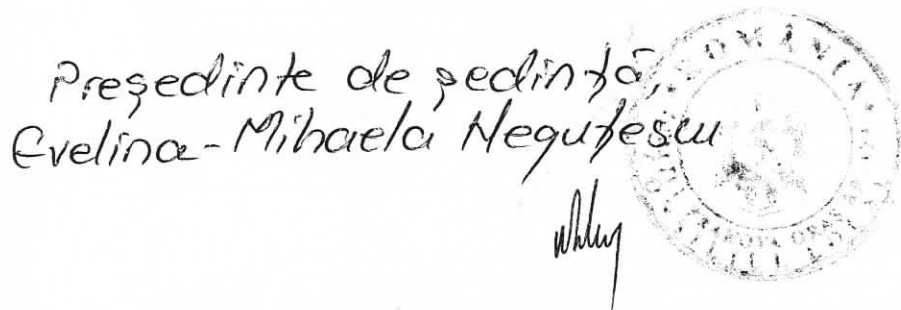 Președinte de ședință,
Evelina-Mihaela Neguțescu
ROMÂNIA